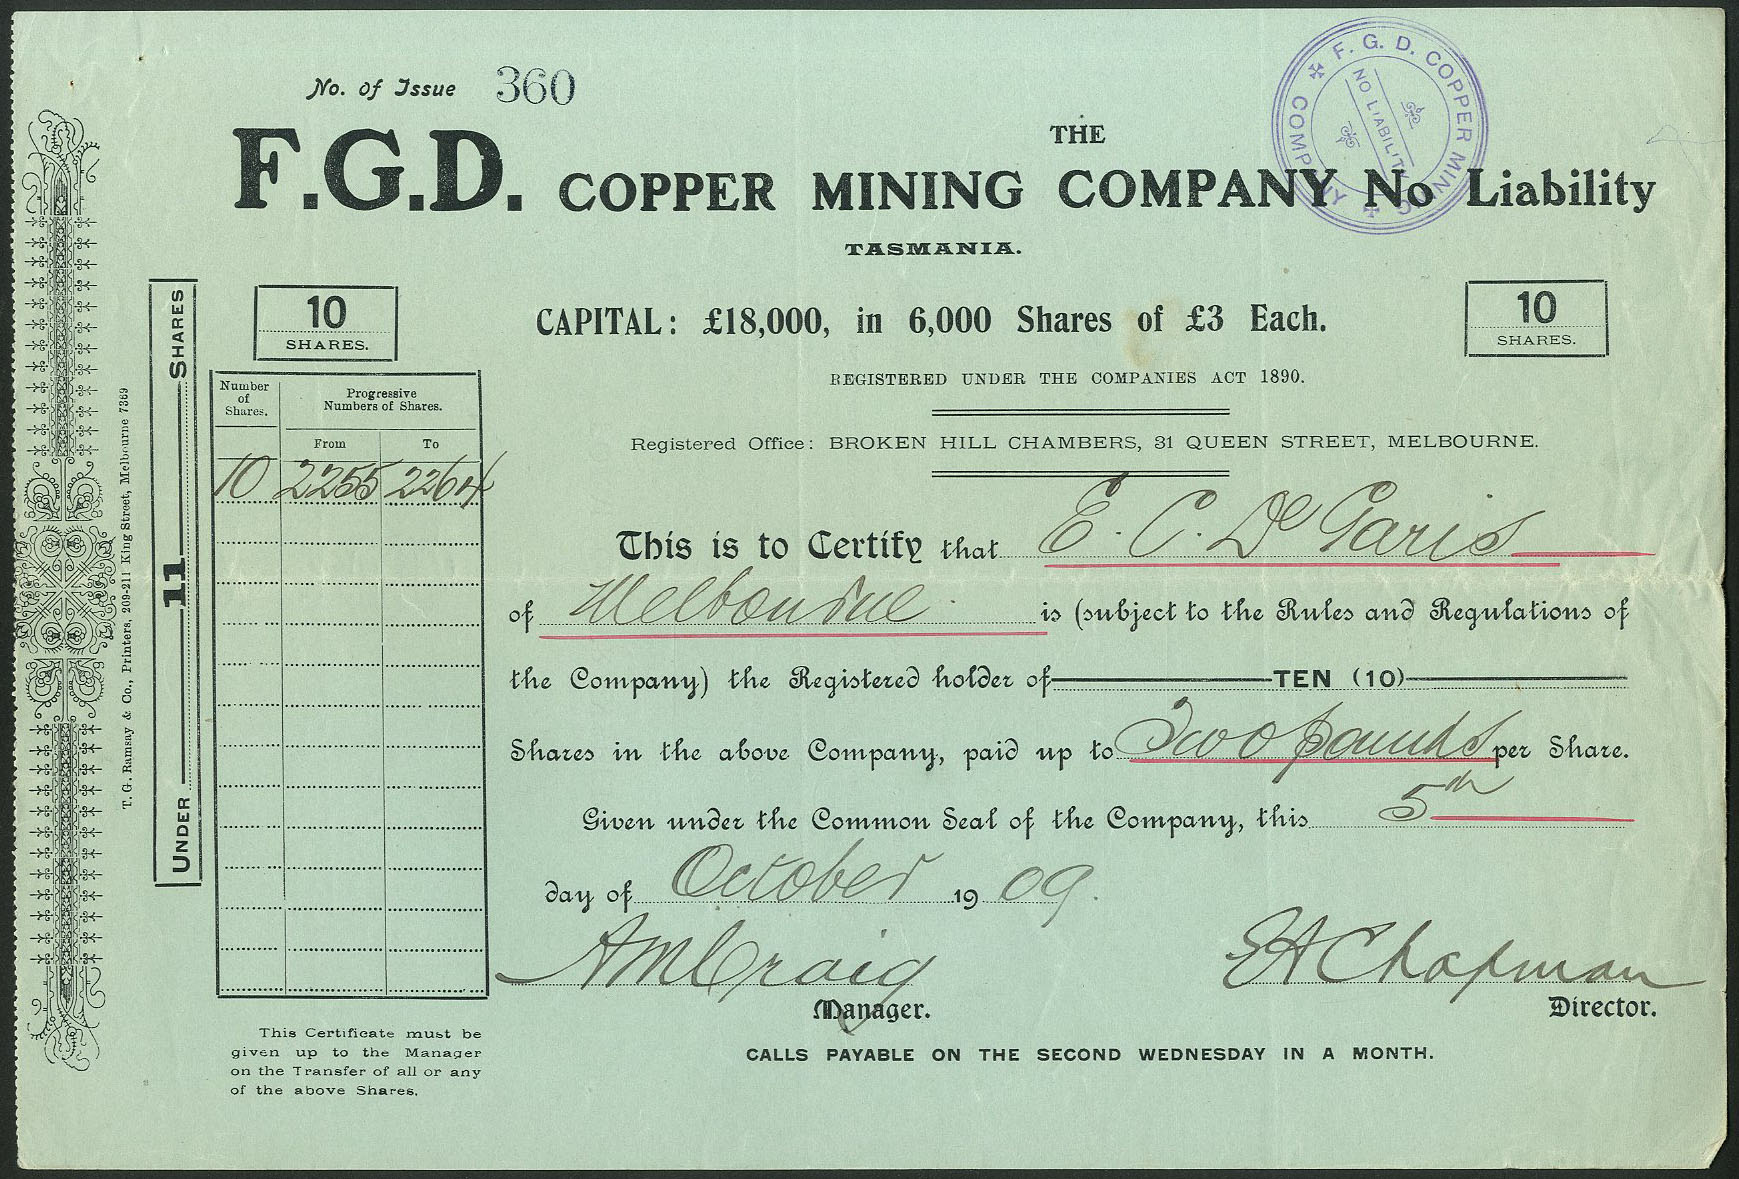 No. of Issue 360
THE
F.G.D. COPPER MINING COMPANY No Liability
TASMANIA.
F. G. D. COPPER MINING COMPANY
NO LIABILITY
10
SHARES.
CAPITAL: £18,000, in 6,000 Shares of £3 Each.
10
SHARES.
REGISTERED UNDER THE COMPANIES ACT 1890.
Registered Office: BROKEN HILL CHAMBERS, 31 QUEEN STREET, MELBOURNE.
UNDER 11 SHARES
T. G. Ramsay & Co., Printers, 209-211 King Street, Melbourne 7369
Number of Shares.
Progressive Numbers of Shares.
From To
10 2255 2264
This is to Certify that E. C. De Garis
of Melbourne is (subject to the Rules and Regulations of
the Company) the Registered holder of TEN (10)
Shares in the above Company, paid up to Two pounds per Share.
Given under the Common Seal of the Company, this 5th
day of October 19 09.
A M Craig
EA Chapman
Manager.
Director.
CALLS PAYABLE ON THE SECOND WEDNESDAY IN A MONTH.
This Certificate must be
given up to the Manager
on the Transfer of all or any
of the above Shares.